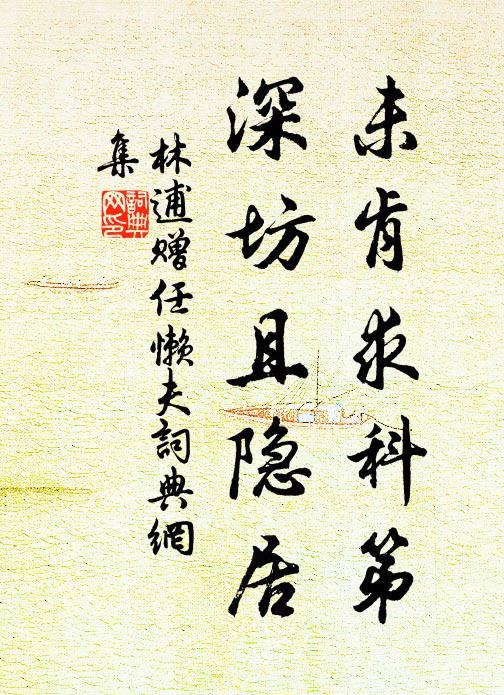 未肯求科第
深坊且隐居
林逋赠任懒夫詞典網
集
詞典
网印